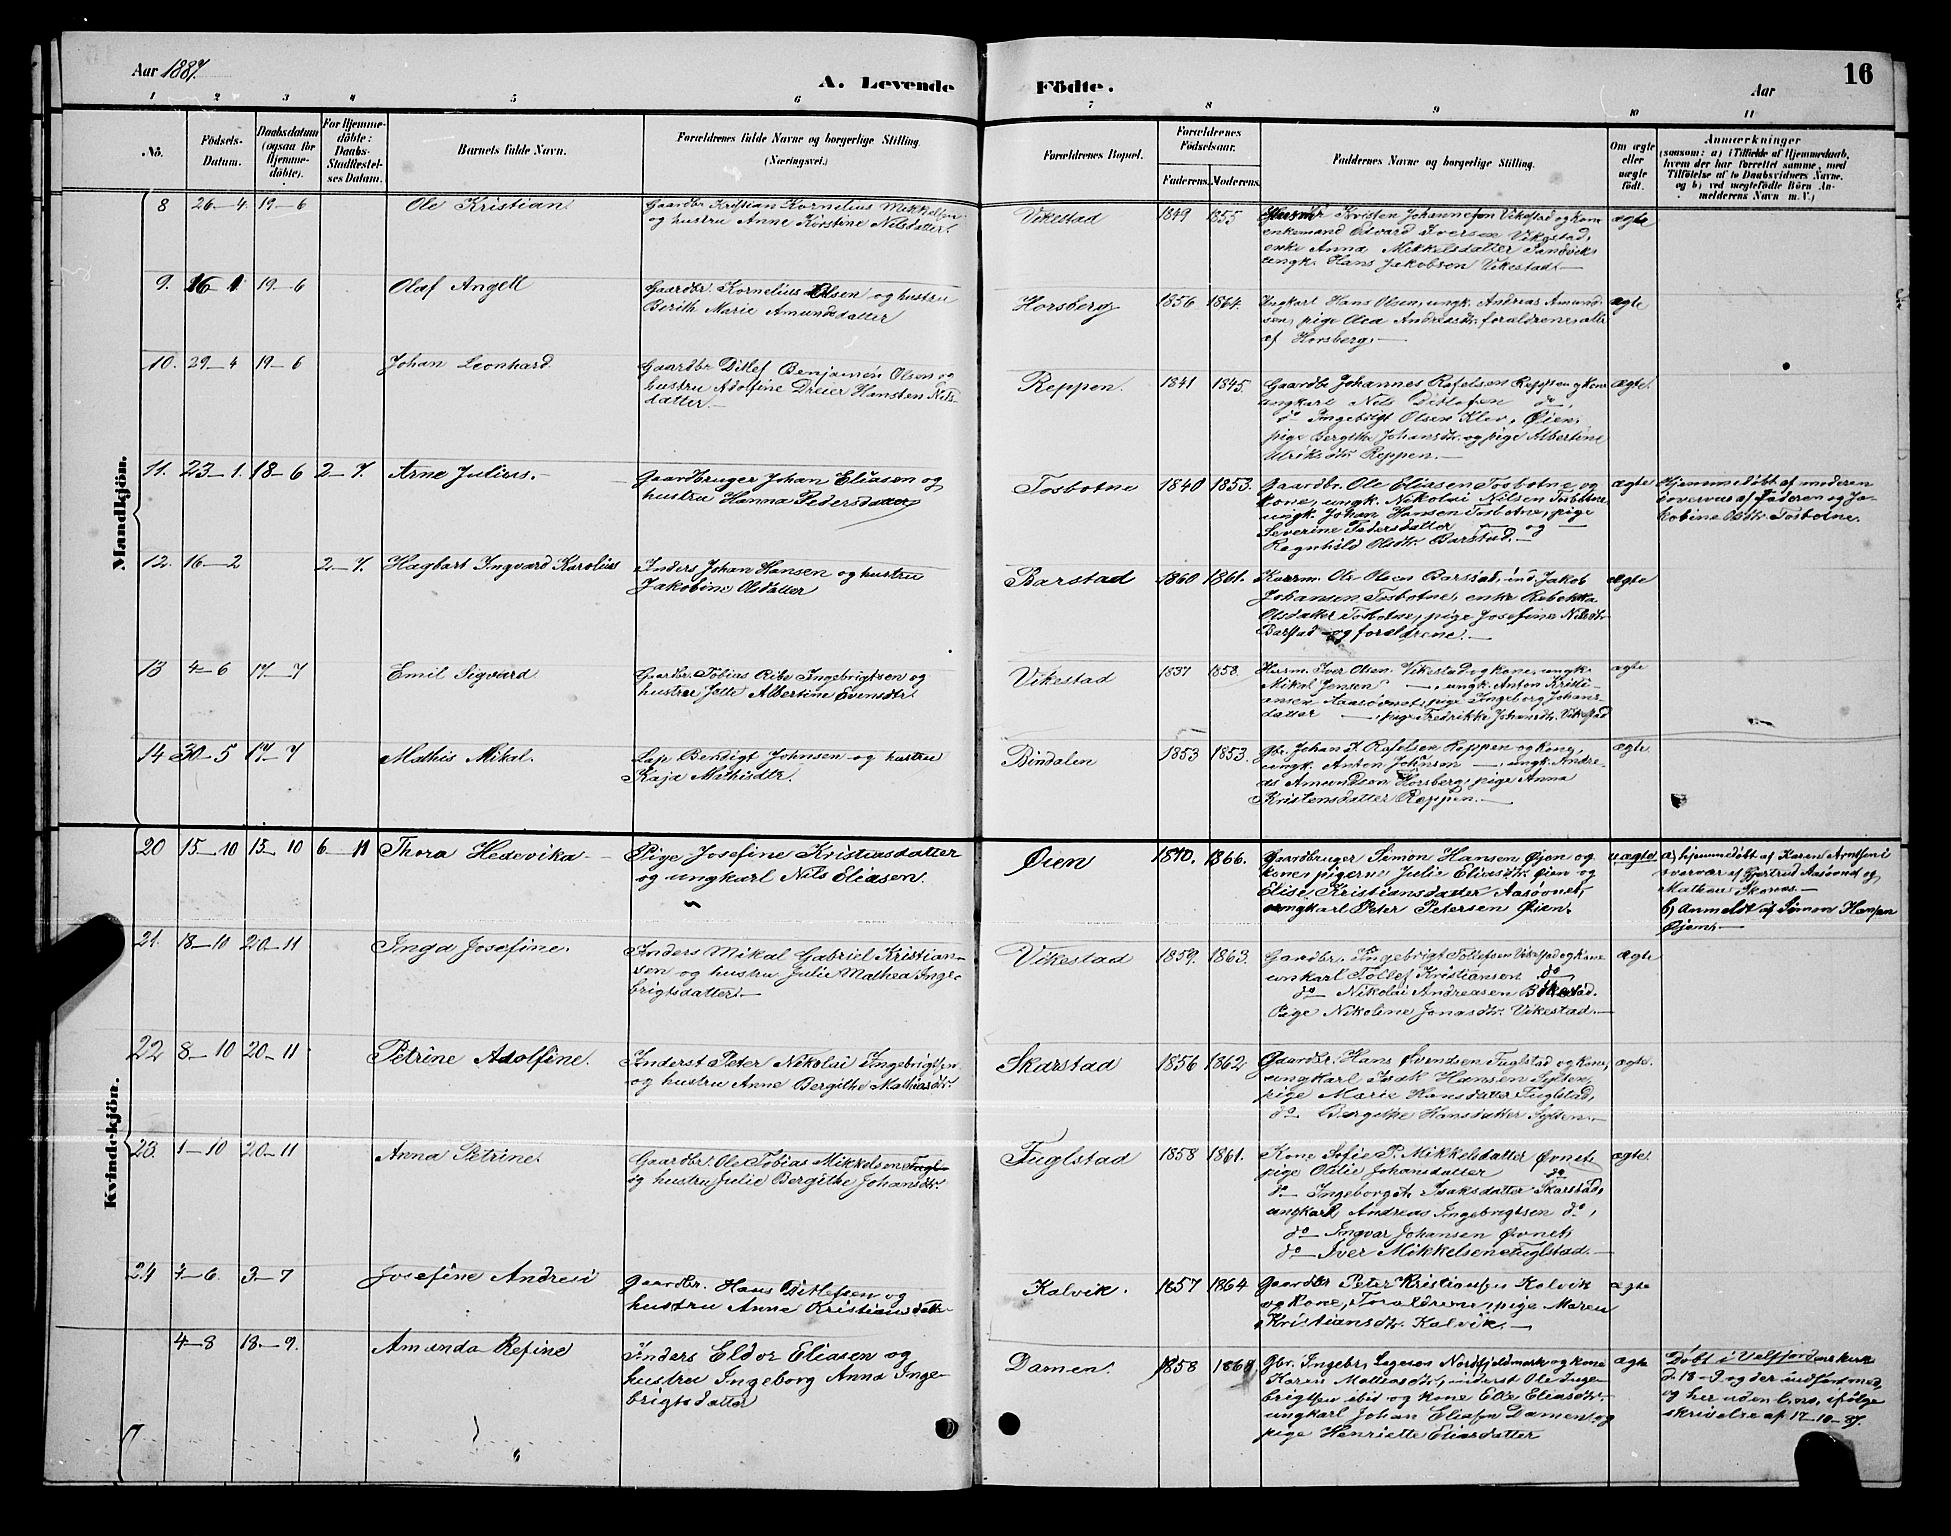 Aar 1887.
A. Levende Födte.
Aar
16
1 2 3 4 5 6 7 8 9 10 11
No.
Födsels-Datum.
Daabsdatum (ogsaa for Hjemme-döbte).
For Hjemme-döbte: Daabs-Stadfæstel-ses Datum.
Barnets fulde Navn.
Forældrenes fulde Navne og borgerlige Stilling. (Næringsvei.)
Forældrenes Bopæl.
Forældrenes Födselsaar.
Faderens. Moderens.
Faddernes Navne og borgerlige Stilling.
Om ægte eller uægte födt.
Anmærkninger
(saasom: a) i Tilfælde af Hjemmedaab,
hvem der har forrettet samme, med
Tilföielse af to Daabsvidners Navne,
og b) ved uægtefödte Börn An-
melderens Navn m. V.)
Mandkjön.
8 26-4 19-6 Ole Kristian
Gaardbr Kristian Kornelius Mikkelsen
og hustru Anne Kirstine Nilsdatter.
Vikestad 1849 1855
Kristen Johannesen Vikestad og kone
enkemand Edvard Iversen Vikestad,
enke Anna Mikkelsdatter Sandvik
ungk. Hans Jakobsen Vikestad.
ægte
9. 16-1 19-6 Olaf Angell
Gaardbr. Kornelius Olsen og hustru
Berith Marie Amundsdatter
Horsberg 1856 1864.
Ungkarl Hans Olsen, ungk. Andreas Amund-
sen, pige Olea Andreasdtr. forældrene, alle
af Horsberg.
ægte
10. 29-4 19-6 Johan Leonhard
Gaardbr Ditlef Benjamin Olsen og
hustru Adolfine Dreier Hansten Nils-
datter.
Reppen. 1841 1845.
Gaardbr Johannes Rafelsen Reppen og kone
ungkarl Nils Ditlefsen do,
do Ingebrigt Olsen Klev, Øien,
pige Bergithe Johansdtr. og pige Albertine
Ulriksdtr. Reppen.
ægte.
11. 23-1. 18-6 2-7. Arne Julius.
Gaardbruger Johan Eliasen og
hustru Hanna Pedersdatter
Tosbotne 1840 1853.
Gaardbr. Ole Eliasen Tosbotne og
kone, ungk. Nikolai Nilsen Tosbotne,
ungk. Johan Hansen Tosbotne, pige
Severine Pedersdatter og
Ragnhild Olsdtr. Barstad.
ægte
Hjemmedöbt af moderen
i overvær af Faderen og Ja-
kobine Olsdtr. Tosbotne.
12. 16-2 2-7. Hagbart Ingvard Karolius
Inders Johan Hansen og hustru
Jakobine Olsdatter
Barstad 1860 1861.
Kaarm. Ole Olsen Barstad, ind. Jakob
Johansen Tosbotne, enke Rebekka
Olsdatter Tosbotne, pige Josefine Nilsdtr.
Barstad og forældrene.
ægte
13 4-6 17-7 Emil Sigvard
Gaardbr. Tobias Ribe Ingebrigtsen og
hustru Jelle Albertine Evensdtr.
Vikestad 1837 1858.
Husm. Iver Olsen Vikestad og kone, ungk.
Mikal Jensen , ungk. Anton Kristi-
ansen Aasövnet, pige Ingeborg Johans-
datter , pige Fredrikke Johansdtr. Vikestad
ægte
14 30-5 17-7 Mathis Mikal.
Lap Bendigt Johnsen og hustru
Kaja
Bindalen 1853 1853.
Gbr. Johan J. Rafelsen Reppen og kone,
ungk. Anton Johnsen , ungk. Andre-
as Amundsen Horsberg, pige Anna
Kristensdatter Reppen.
ægte.
Kvindekjön.
20 15-10 15-10 6-11 Thora Hedevika
Pige Josefine Kristiansdatter
og ungkarl Nils Eliasen.
Øien 1866.
Gaardbruger Simon Hansen Øien og
kone, pigerne Julie Eliasdtr. Øien og
Elise Kristiansdatter Aasövnet,
ungkarl Peter Petersen Øien.
uægte
a) hjemmedöbt af Karen Arntsen i
overvær af Gjertrud Aasövnet og
Mathea Skones.
b) Anmeldt af Simon Hansen
Øien.
21. 18-10 20-11 Inga Josefine.
Inders Mikal Gabriel Kristian-
sen og hustru Julie Mathea Inge-
brigtsdatter.
Vikestad 1859. 1863.
Gaardbr. Ingebrigt Tollefsen Vikestad og kone
unkarl Tollef Kristiansen do
do Nikolai Andreasen
Pige Nikoline Jonasdtr. Vikestad.
ægte
22 8-10 20-11 Petrine Adolfine.
Inderst Peter Nikolai Ingebrigtsen
og hustru Anne Bergithe Mathiasdtr.
Skarstad 1856 1862
Gaardbr. Hans Svendsen Fuglstad og kone,
ungkarl Isak Hansen Sylten,
pige Marie Hansdatter Fuglstad,
do Bergithe Hansdatter Sylten.
ægte.
23. 1-10 20-11 Anna Petrine.
Gaardbr. Ole Tobias Mikkelsen Fugl-
og hustru Julie Bergithe Johansdtr.
Fuglstad 1858 1861.
Kone Sofie P. Mikkelsdatter Øvnet,
pige Oldie Johansdatter do
do Ingeborg A. Isaksdatter Skarstad,
ungkarl Andreas Ingebrigtsen do,
do Ingvar Johansen Øvnet,
do Iver Mikkelsen Fuglstad.
ægte.
24 7-6. 3-7 Josefine Andresi
Gaardbr. Hans Ditlefsen og
hustru Anne Kristiansdatter
Kalvik. 1857 1864
Gaardbr Peter Kristiansen Kalvik
og kone, Forældrene, pige Maren
Kristiansdtr. Kalvik.
ægte
4-8 18-9. Amanda Refine
Inders Eldor Eliasen og
hustru Ingeborg Anna Inge-
brigtsdatter
Damen. 1858
Gbr. Ingebr. Nordfjeldmark og kone
Karen Mathiasdtr, inderst Ole Inge-
brigtsen ibid og kone Elle Eliasdtr.
ungkarl Johan Eliasen Damen, og
pige Henriette Eliasdatter
ægte
Døbt i Velfjordens kirke
d. 18-9 og der indført med,
og her uden no., ifølge
skrivelse af 17-10-87.